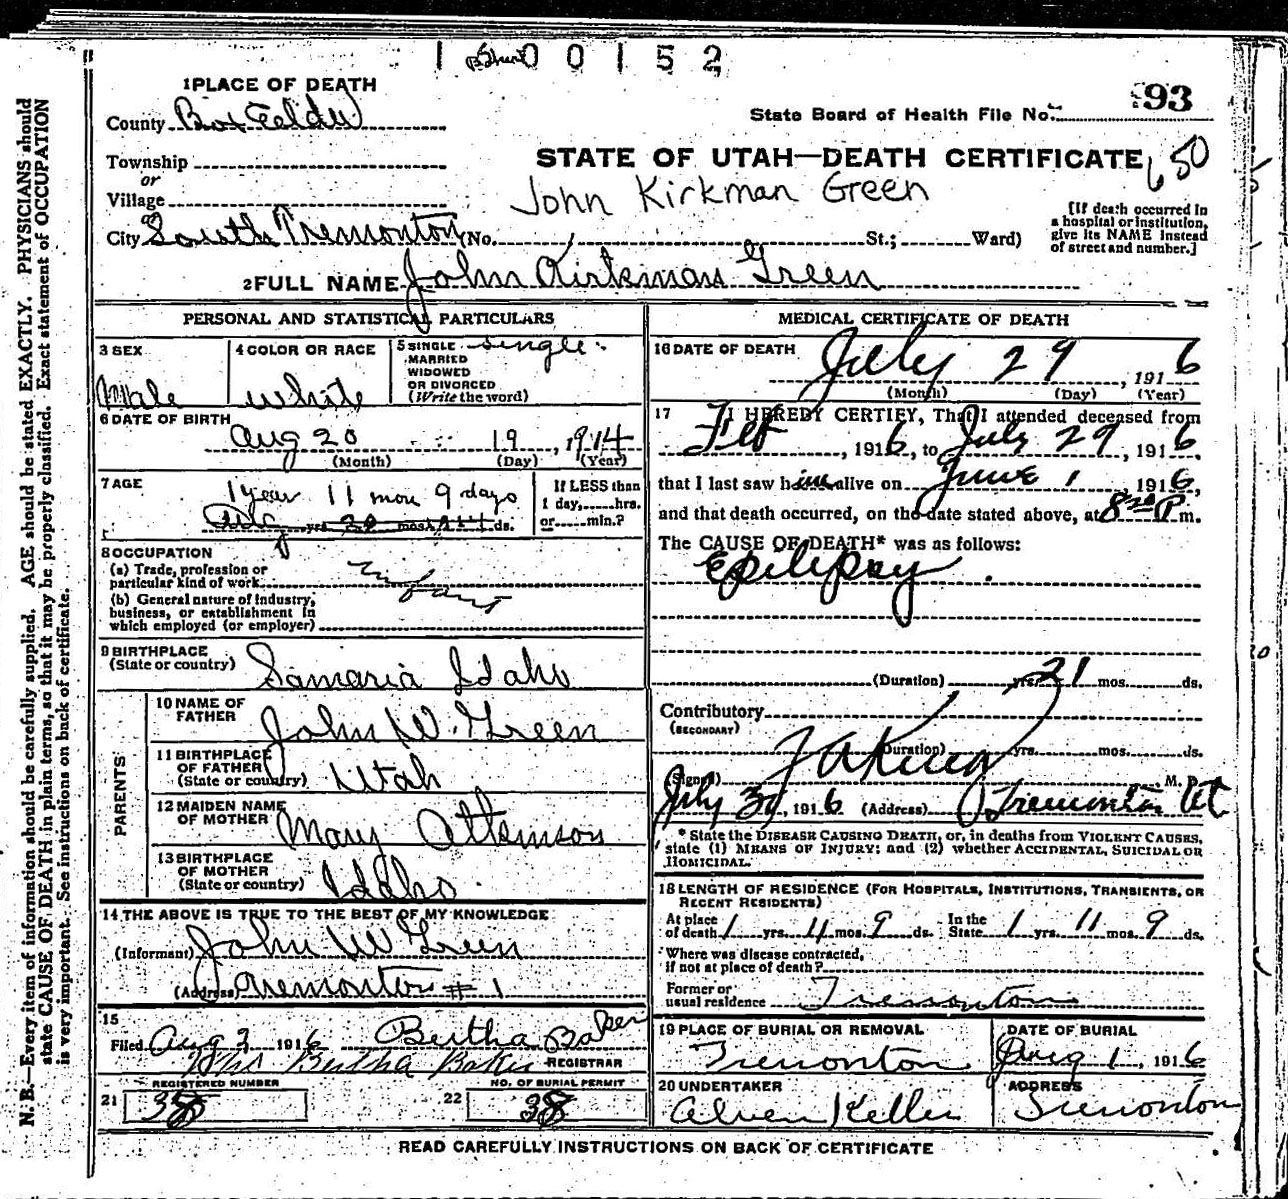 1 0 0 1 5 2
1 PLACE OF DEATH
County Box Elder
State Board of Health File No. 93
Township
or
Village
STATE OF UTAH—DEATH CERTIFICATE
50
John Kirkman Green
[If death occurred in
a hospital or institution,
give its NAME instead
of street and number.]
or
City South Tremonton (No. St.; Ward)
2 FULL NAME John Kirkman Green
PERSONAL AND STATISTICAL PARTICULARS
3 SEX
Male
4 COLOR OR RACE
White
5 SINGLE
MARRIED
WIDOWED
OR DIVORCED
(Write the word)
single
6 DATE OF BIRTH
Aug 20 19, 1914
(Month) (Day) (Year)
7 AGE
1 year 11 mon 9 days
yrs. mos. ds.
If LESS than
1 day, hrs.
or min.?
8 OCCUPATION
(a) Trade, profession or
particular kind of work
infant
(b) General nature of industry,
business, or establishment in
which employed (or employer)
9 BIRTHPLACE
(State or country) Samaria Idaho
PARENTS
10 NAME OF
FATHER John W. Green
11 BIRTHPLACE
OF FATHER
(State or country) Utah
12 MAIDEN NAME
OF MOTHER Mary Atkinson
13 BIRTHPLACE
OF MOTHER
(State or country) Idaho
14 THE ABOVE IS TRUE TO THE BEST OF MY KNOWLEDGE
(Informant) John W Green
(Address) Tremonton # 1
15
Filed Aug 2 1916 Bertha Baker
Mrs Bertha Baker REGISTRAR
REGISTERED NUMBER
21 38
NO. OF BURIAL PERMIT
22 38
MEDICAL CERTIFICATE OF DEATH
16 DATE OF DEATH
July 29, 1916
(Month) (Day) (Year)
17 I HEREBY CERTIFY, That I attended deceased from
Feb, 1916, to July 29, 1916,
that I last saw him alive on June 1, 1916,
and that death occurred, on the date stated above, at 8 30 P m.
The CAUSE OF DEATH* was as follows:
Epilepsy
(Duration) yrs. 21 mos. ds.
Contributory
(SECONDARY)
(Duration) yrs. mos. ds.
(Signed) M. D.
July 30, 1916 (Address) Tremonton Ut
* State the DISEASE CAUSING DEATH, or, in deaths from VIOLENT CAUSES,
state (1) MEANS OF INJURY; and (2) whether ACCIDENTAL, SUICIDAL OR
HOMICIDAL.
18 LENGTH OF RESIDENCE (FOR HOSPITALS, INSTITUTIONS, TRANSIENTS, OR
RECENT RESIDENTS)
At place
of death 1 yrs. 11 mos. 9 ds. In the
State 1 yrs. 11 mos. 9 ds.
Where was disease contracted,
if not at place of death?
Former or
usual residence Tremonton
19 PLACE OF BURIAL OR REMOVAL
Tremonton
DATE OF BURIAL
Aug 1, 1916
20 UNDERTAKER
Alven Keller
ADDRESS
Tremonton
READ CAREFULLY INSTRUCTIONS ON BACK OF CERTIFICATE
N. B.—Every item of information should be carefully supplied. AGE should be stated EXACTLY. PHYSICIANS should
state CAUSE OF DEATH in plain terms, so that it may be properly classified. Exact statement of OCCUPATION
is very important. See instructions on back of certificate.